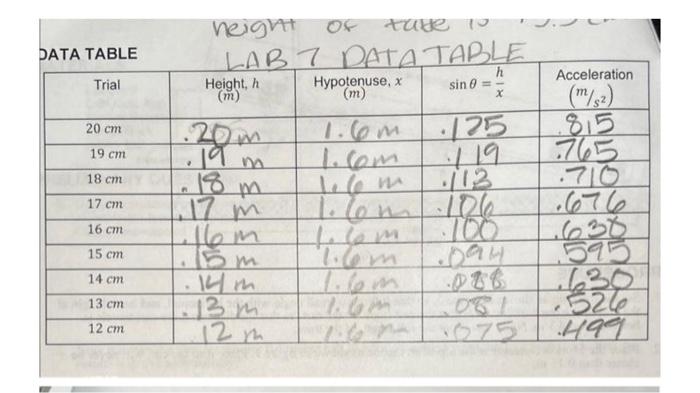 height of tube is
LAB 7 DATA TABLE
DATA TABLE
Trial Height, h (m) Hypotenuse, x (m) sin θ = h/x Acceleration (m/s²)
20 cm .20 m 1.6 m .125 .815
19 cm .19 m 1.6 m .119 .765
18 cm .18 m 1.6 m .113 .710
17 cm .17 m 1.6 m .106 .676
16 cm .16 m 1.6 m .100
15 cm .15 m 1.6 m .094 .595
14 cm .14 m 1.6 m .088 .630
13 cm .13 m 1.6 m .081 .526
12 cm 12 m 1.6 m .075 .499